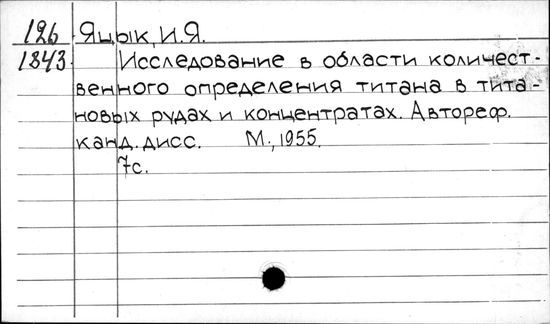 126 Яцык, И.Я.
1843 Исследование в области количест-
венного определения титана в тита-
новых рудах и концентратах. Автореф.
канд. дисс. М., 1955.
7с.